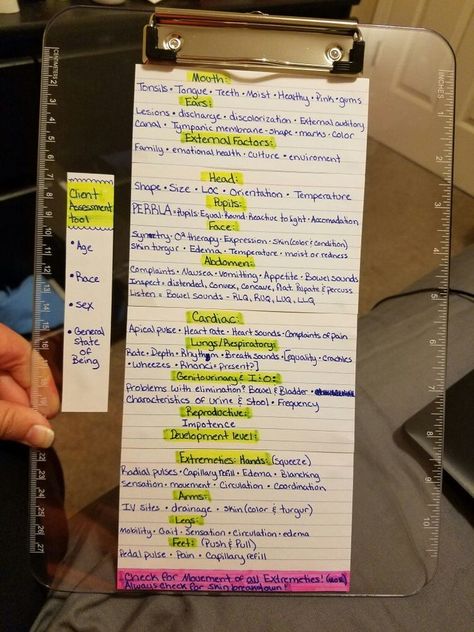 Client
Assessment
Tool
• Age
• Race
• Sex
• General
State of
Being
Mouth:
Tonsils • Tongue • Teeth • Moist • Healthy • Pink • gums
Ears:
Lesions • discharge • discolorization • External auditory
Canal • Tympanic membrane • shape • marks • Color
External Factors:
Family • emotional health • culture • enviroment
Head:
Shape • Size • LOC • Orientation • Temperature
Pupils:
PERRLA = Pupils: Equal: Round: Reactive to light • Accomodation
Face:
Symmetry • O² therapy • Expression • Skin (color & condition)
Skin turgur • Edema • Temperature • moist or redness
Abdomen:
Complaints • Nausea • Vomitting • Appetite • Bowel Sounds
Inspect = distended, convex, concave, flat. Palpate & percuss
Listen = Bowel Sounds - RLQ, RUQ, LUQ, LLQ
Cardiac:
Apical pulse • Heart rate • Heart Sounds • Complaints of pain
Lungs/Respiratory:
Rate • Depth • Rhythym • Breath sounds • [equality • Crackles
• Wheezes • Rhonci • present?]
Genitourinary & I:O:
Problems with elimination? Bowel & Bladder •
Characteristics of urine & Stool • Frequency
Reproductive:
Impotence
Development level:
Extremeties: Hands: (squeeze)
Radial pulses • Capillary refill • Edema • Blanching
Sensation • movement • Circulation • Coordination
Arms:
IV Sites • drainage • Skin (color & turgur)
Legs:
Mobility • Gait • Sensation • Circulation • edema
Feet: (Push & Pull)
Pedal pulse • Pain • Capillary refill
Check for Movement of all Extremeties!
Always check for skin breakdown!